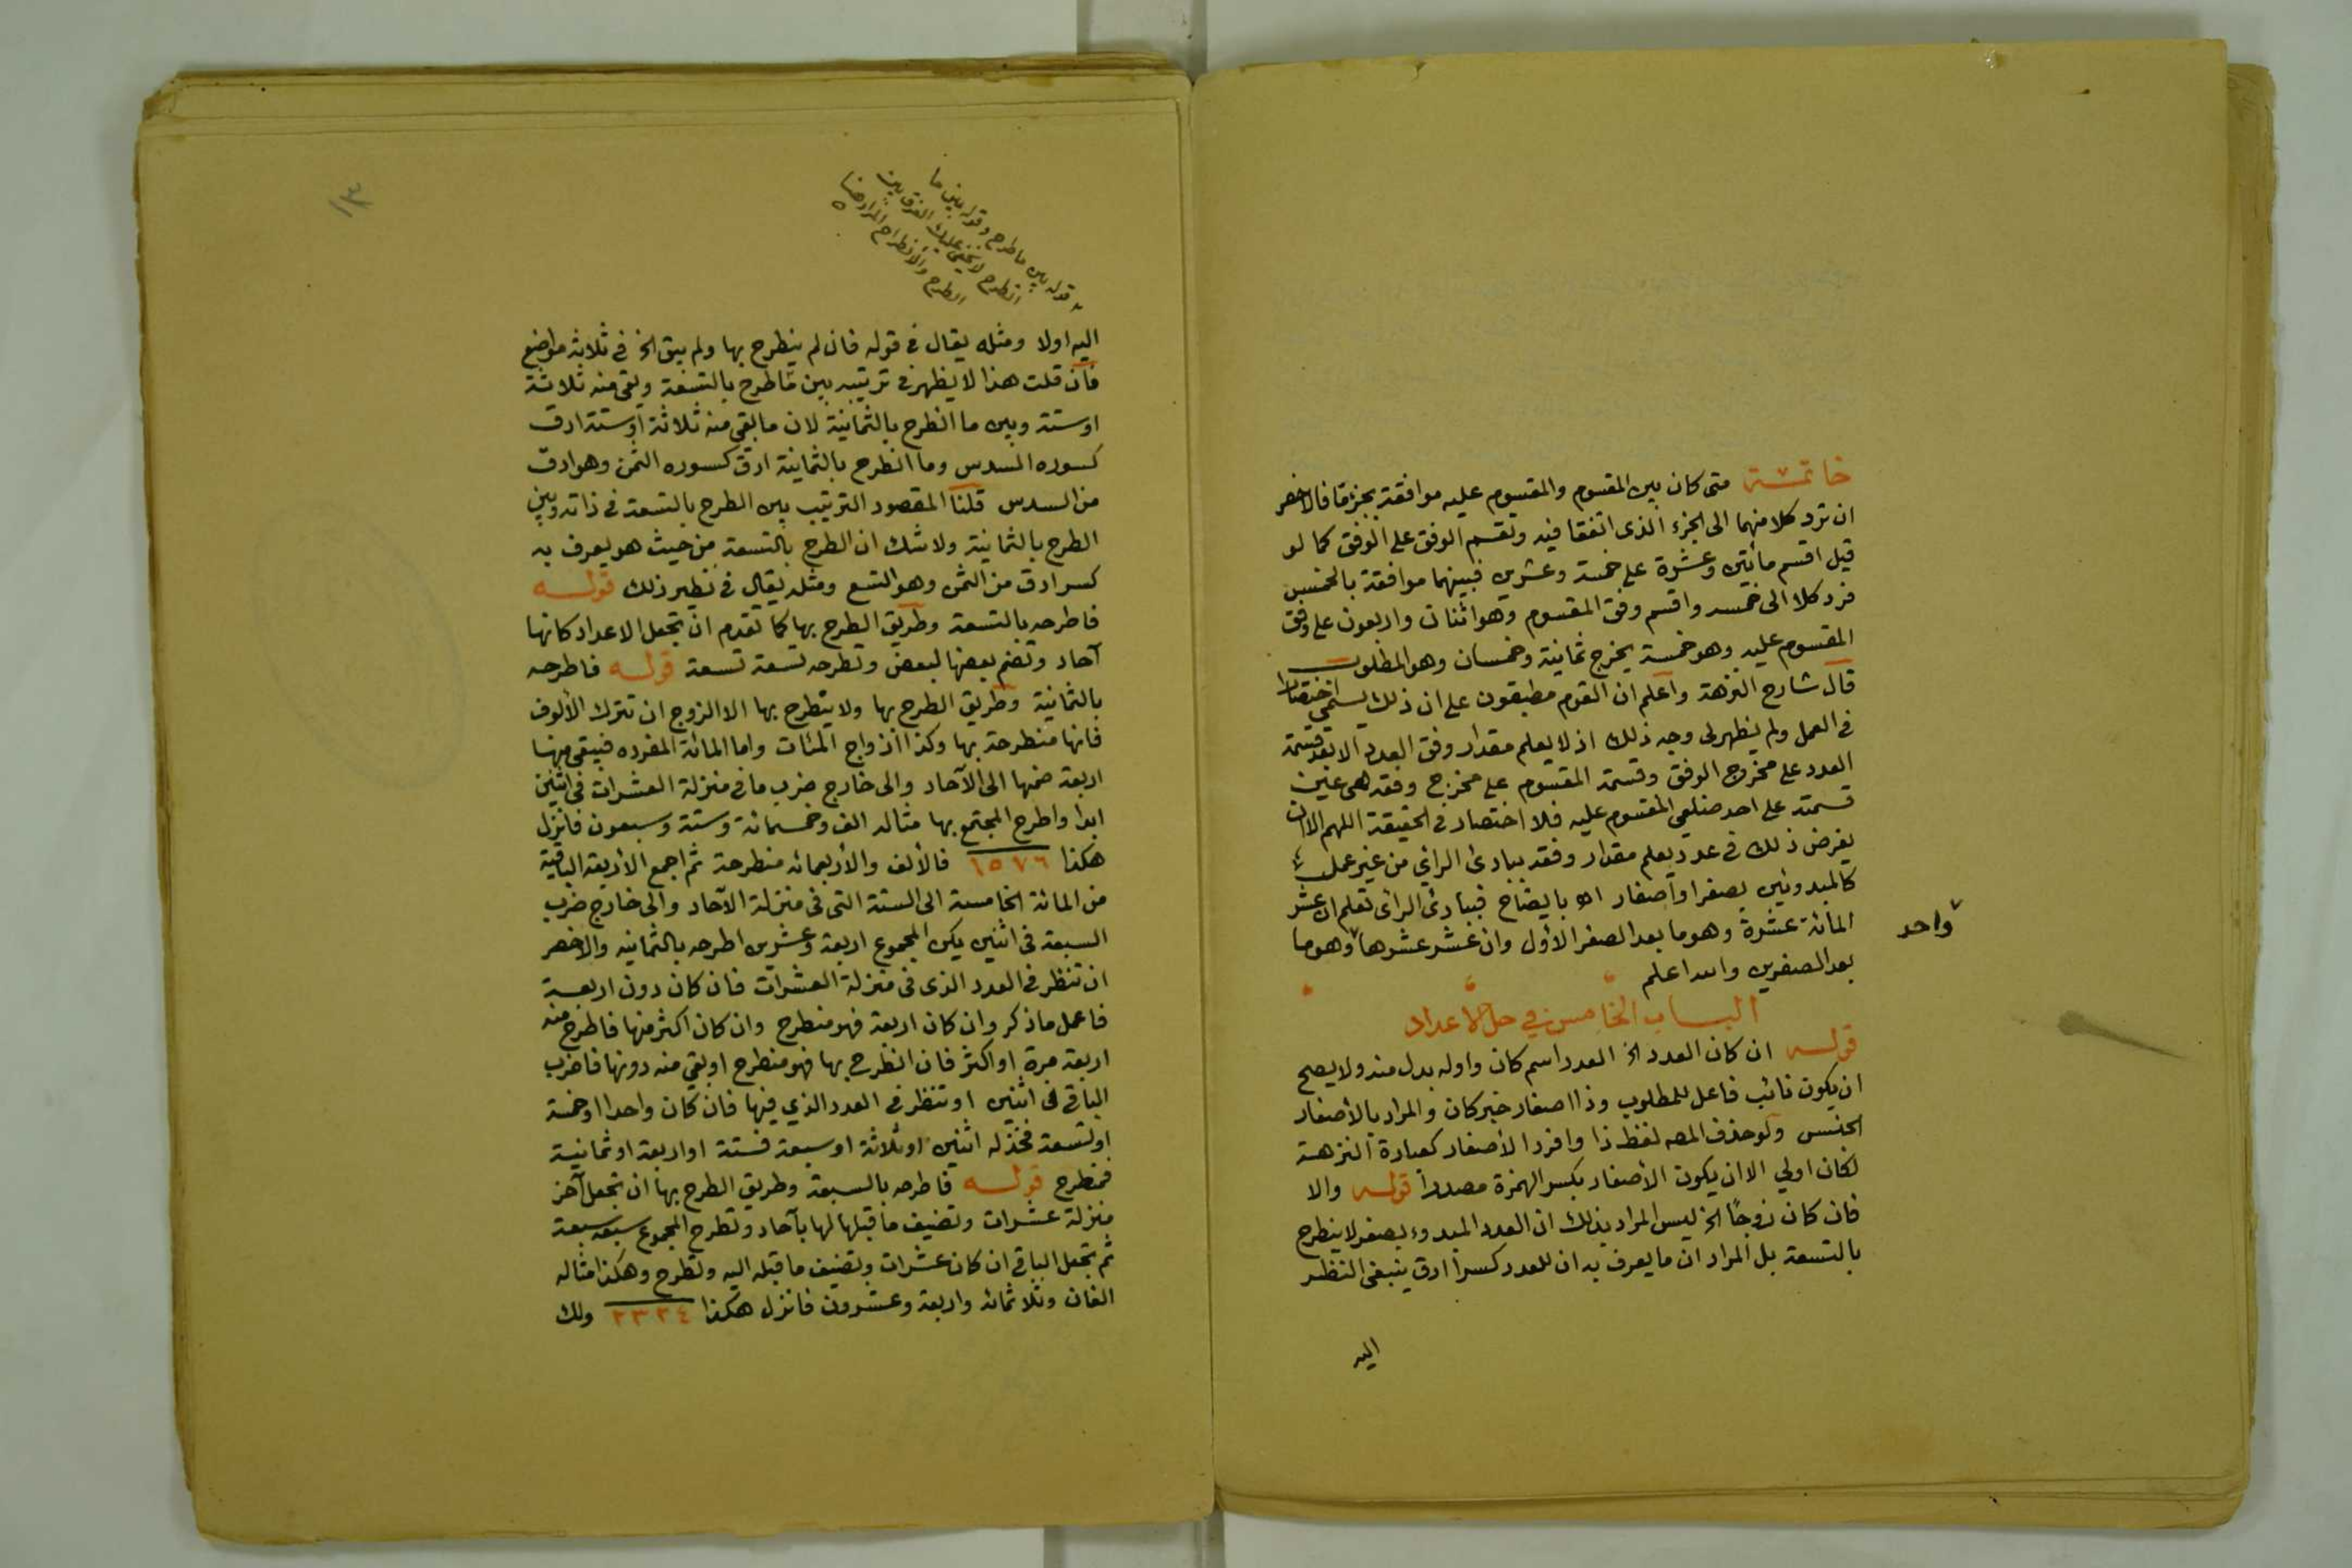 خاتمة متى كان بين المقسوم والمقسوم عليه موافقة بجزء ما فالاخصر
ان ترد كلا منهما الى الجزء الذى اتفقا فيه وتقسم الوفق على الوفق كما لو
قيل اقسم مائتين وعشرة على خمسة وعشرين فبينهما موافقة بالخمس
فرد كلا الى خمسه واقسم وفق المقسوم وهو اثنان واربعون على وفق
المقسوم عليه وهو خمسة يخرج ثمانية وخمسان وهو المطلوب
قال شارح النزهة واعلم ان القوم مطبقون على ان ذلك يسمى اختصارا
فى العمل ولم يظهر لى وجه ذلك اذ لا يعلم مقدار وفق العدد الا بعد قسمة
العدد على مخرج الوفق وقسمة المقسوم على مخرج وفقه هى عين
قسمته على احد ضلعى المقسوم عليه فلا اختصار فى الحقيقة اللهم الا ان
يفرض ذلك فى عدد يعلم مقدار وفقه ببادئ الرأي من غير عمل
كالمبدوئين بصفر او اصفار اه بايضاح فببادئ الرأى تعلم ان عشر
المائة عشرة وهو ما بعد الصفر الأول وان عشر عشرها وهو ما
واحد
بعد الصفرين والله اعلم
الباب الخامس في حل الأعداد
قوله ان كان العدد الخ العدد اسم كان واوله بدل منه ولا يصح
ان يكون نائب فاعل للمطلوب وذا اصفار خبر كان والمراد بالأصفار
الجنس ولو حذف المصه لفظ ذا وافرد الأصفار كعبارة النزهة
لكان اولي الا ان يكون الأصفار بكسر الهمزة مصدرا قوله والا
فان كان زوجًا الخ ليس المراد بذلك ان العدد المبدوء بصفر لا ينطرح
بالتسعة بل المراد ان ما يعرف به ان للعدد كسرا ادق ينبغى النظر
اليه
١٣
قوله بين ما طرح وقوله بين ما
انطرح لا يخفى عليك الفرق بين
الطرح والانطراح المراد هنا
اليه اولا ومثله يقال فى قوله فان لم ينطرح بها ولم يبق الخ فى ثلاثة مواضع
فان قلت هذا لا يظهر فى ترتيبه بين ما طرح بالتسعة وبقى منه ثلاثة
او ستة وبين ما انطرح بالثمانية لان ما بقى منه ثلاثة او ستة ادق
كسوره السدس وما انطرح بالثمانية ادق كسوره الثمن وهو ادق
من السدس قلنا المقصود الترتيب بين الطرح بالتسعة فى ذاته وبين
الطرح بالثمانية ولا شك ان الطرح بالتسعة من حيث هو يعرف به
كسر ادق من الثمن وهو التسع ومثله يقال فى نظير ذلك قوله
فاطرحه بالتسعة وطريق الطرح بها كما تقدم ان تجعل الاعداد كانها
آحاد وتضم بعضها لبعض وتطرحه تسعة تسعة قوله فاطرحه
بالثمانية وطريق الطرح بها ولا ينطرح بها الا الزوج ان تترك الألوف
فانها منطرحة بها وكذا ازواج المئات واما المائة المفرده فيبقى منها
اربعة ضمها الى الآحاد والى خارج ضرب ما فى منزلة العشرات فى اثنين
ابدا واطرح المجتمع بها مثاله الف وخمسمائة وستة وسبعون فانزل
هكذا ١٥٧٦ فالألف والأربعمائه منطرحة ثم اجمع الأربعة الباقية
من المائة الخامسة الى الستة التى فى منزلة الآحاد والى خارج ضرب
السبعة فى اثنين يكن المجموع اربعة وعشرين اطرحه بالثمانيه والاخصر
ان تنظر فى العدد الذى فى منزلة العشرات فان كان دون اربعة
فاعمل ما ذكر وان كان اربعة فهو منطرح وان كان اكثر منها فاطرح منه
اربعة مرة او اكثر فان انطرح بها فهو منطرح او بقي منه دونها فاضرب
الباقي فى اثنين او تنظر فى العدد الذي فيها فان كان واحدا او خمسة
او تسعة فخذ له اثنين او ثلاثة او سبعة فستة او اربعة او ثمانية
فمنطرح قوله فاطرحه بالسبعة وطريق الطرح بها ان تجعل آخر
منزلة عشرات وتضيف ما قبلها لها بآحاد وتطرح المجموع سبعه سبعة
ثم تجعل الباقى ان كان عشرات وتضيف ما قبله اليه وتطرح وهكذا مثاله
الفان وثلاثمائه واربعة وعشرون فانزل هكذا ٢٣٢٤ ولك